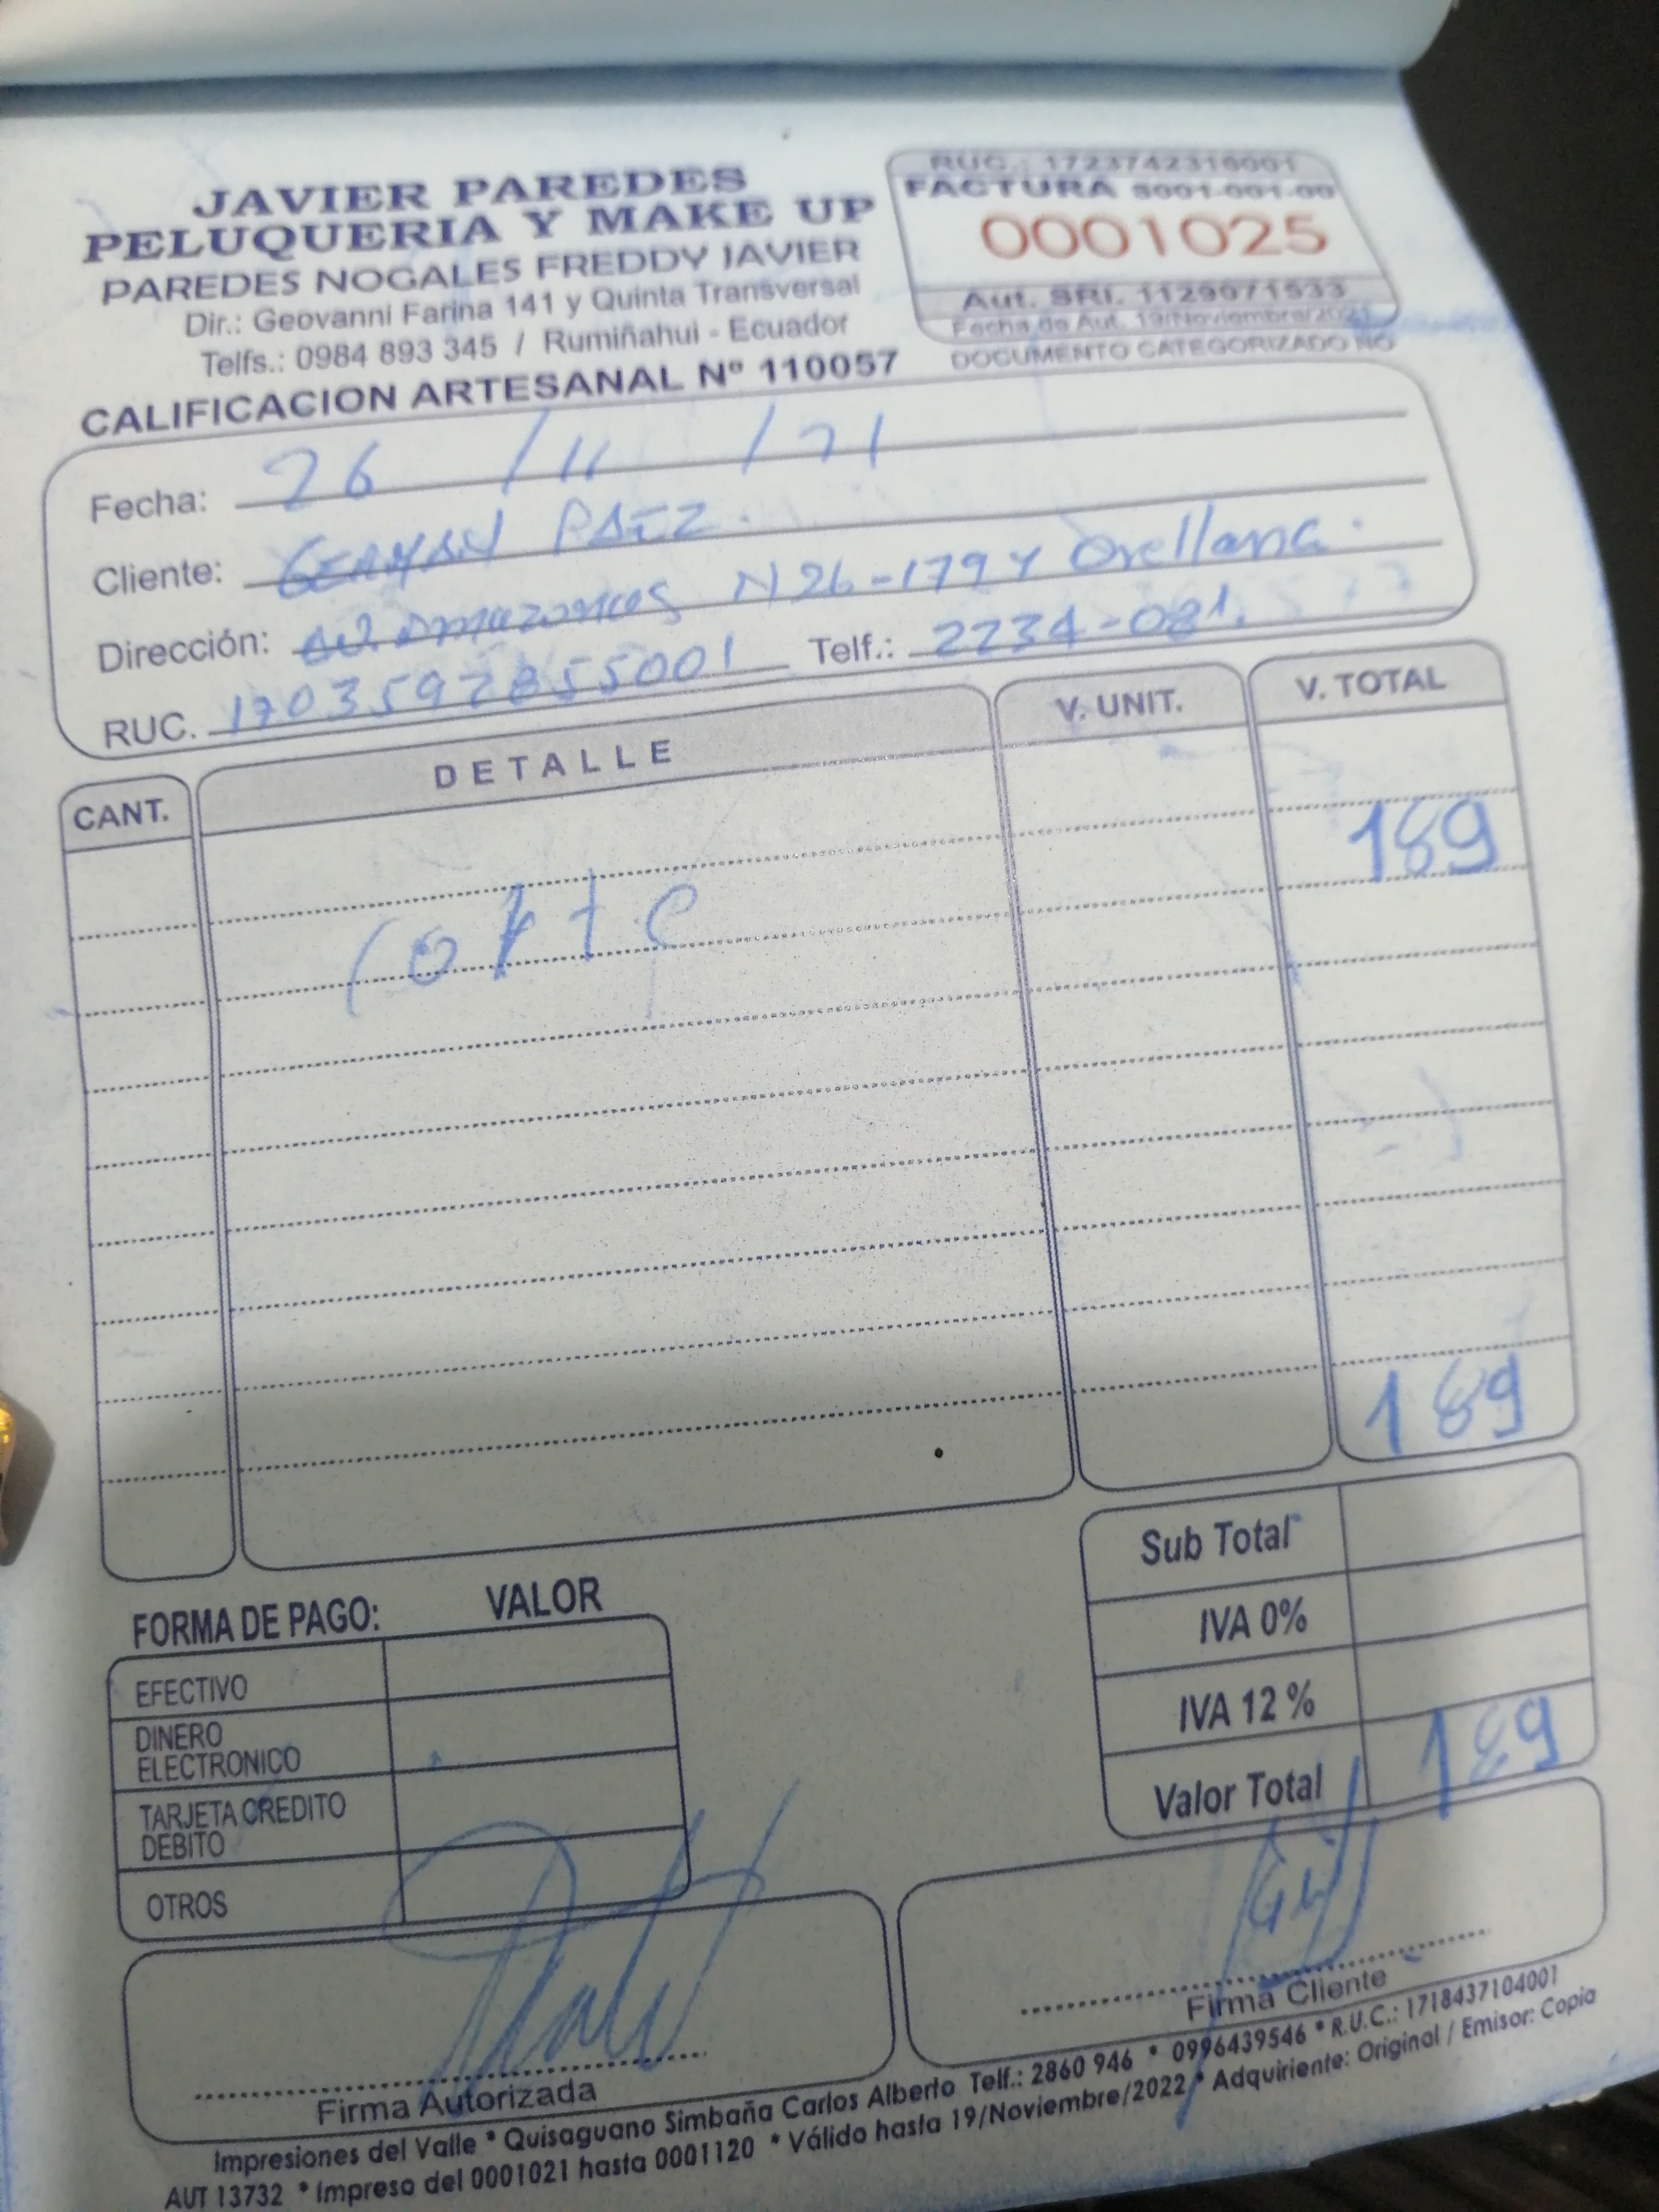 JAVIER PAREDES
PELUQUERIA Y MAKE UP
PAREDES NOGALES FREDDY JAVIER
Dir.: Geovanni Farina 141 y Quinta Transversal
Telfs.: 0984 893 345 / Rumiñahui - Ecuador
CALIFICACION ARTESANAL Nº 110057
RUC.: 1723742318001
FACTURA S001-001-00
0001025
Aut. SRI. 1129971533
Fecha de Aut. 19/Noviembre/2021
DOCUMENTO CATEGORIZADO NO
Fecha: 26 / 11 / 21
Cliente: GERMAN PAEZ.
Dirección: Av. Amazonas N26-179 Y Orellana.
RUC. 1703597855001 Telf.: 2234-081.
CANT. DETALLE V. UNIT. V. TOTAL
Corte 189
189
Sub Total
IVA 0%
IVA 12 %
Valor Total 189
FORMA DE PAGO: VALOR
EFECTIVO
DINERO
ELECTRONICO
TARJETA CREDITO
DEBITO
OTROS
Firma Autorizada
Firma Cliente
Impresiones del Valle * Quisaguano Simbaña Carlos Alberto Telf.: 2860 946 * 0996439546 * R.U.C.: 1718437104001
AUT 13732 * Impreso del 0001021 hasta 0001120 * Válido hasta 19/Noviembre/2022 * Adquiriente: Original / Emisor: Copia